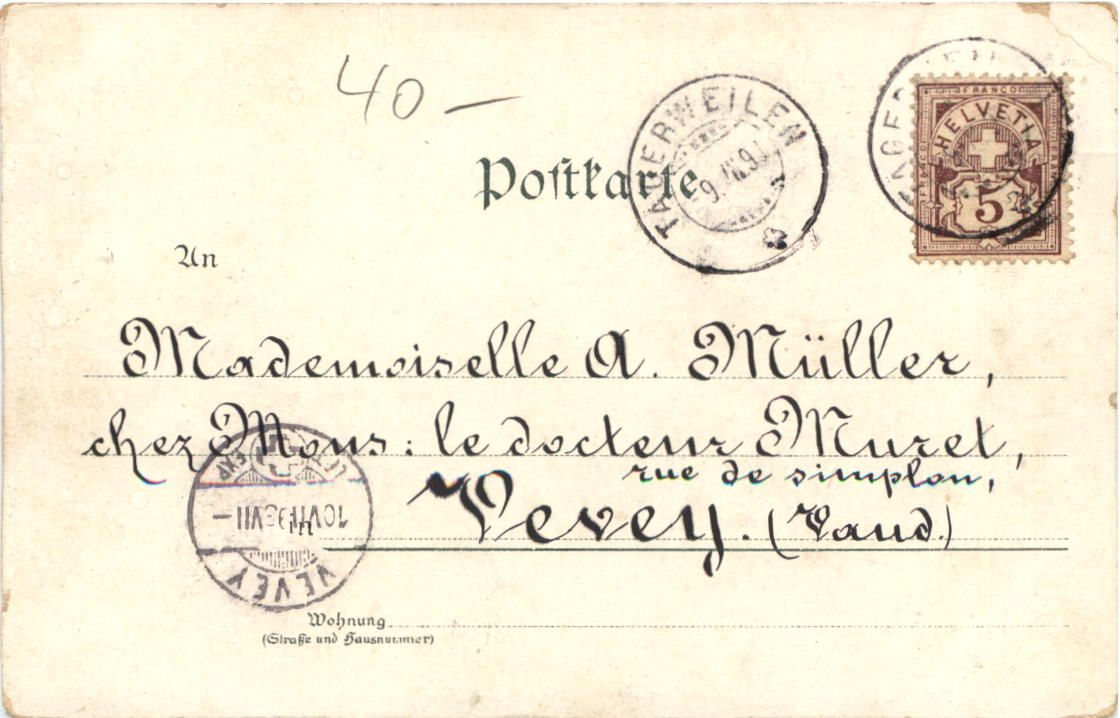 40 —
Postkarte
TÆGERWEILEN
FRANCO
HELVETIA
5
An
Mademoiselle A. Müller,
chez Mons: le docteur Muret,
rue de simplon,
Vevey. (Vaud.)
in
VEVEY
Wohnung
(Straße und Hausnummer)